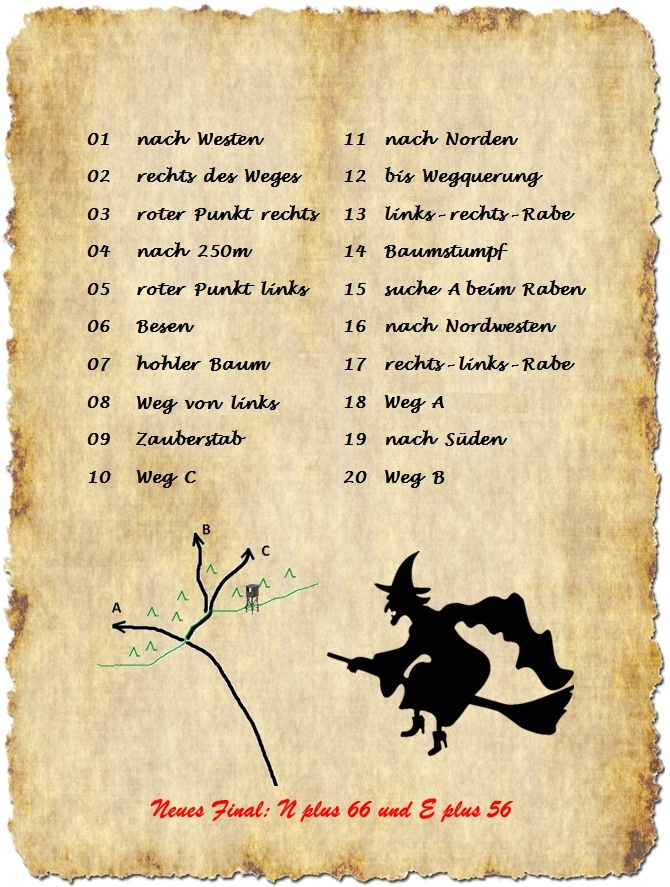 01 nach Westen
02 rechts des Weges
03 roter Punkt rechts
04 nach 250m
05 roter Punkt links
06 Besen
07 hohler Baum
08 Weg von links
09 Zauberstab
10 Weg C
11 nach Norden
12 bis Wegquerung
13 links-rechts-Rabe
14 Baumstumpf
15 suche A beim Raben
16 nach Nordwesten
17 rechts-links-Rabe
18 Weg A
19 nach Süden
20 Weg B
B
C
A
Neues Final: N plus 66 und E plus 56